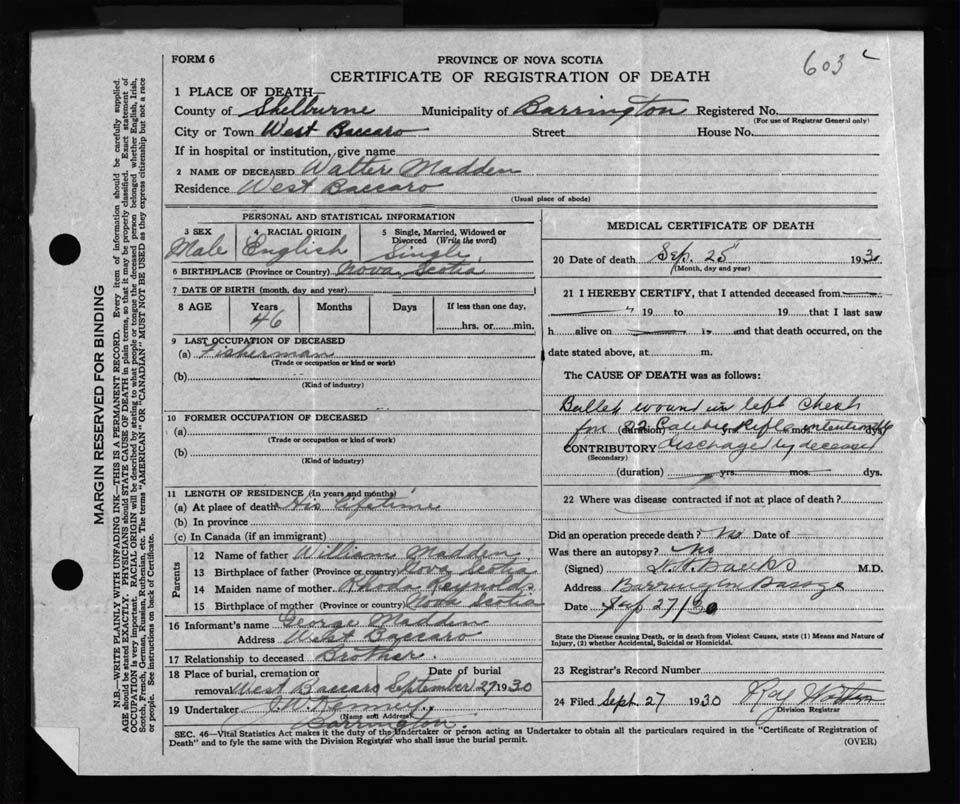 FORM 6
PROVINCE OF NOVA SCOTIA
603
CERTIFICATE OF REGISTRATION OF DEATH
1 PLACE OF DEATH—
County of Shelburne Municipality of Barrington Registered No.
(For use of Registrar General only)
City or Town West Baccaro Street House No.
If in hospital or institution, give name
2 NAME OF DECEASED Walter Madden
Residence West Baccaro
(Usual place of abode)
PERSONAL AND STATISTICAL INFORMATION
3 SEX 4 RACIAL ORIGIN 5 Single, Married, Widowed or Divorced (Write the word)
Male English Single
6 BIRTHPLACE (Province or Country) Nova Scotia
7 DATE OF BIRTH (month, day and year)
8 AGE Years Months Days If less than one day,
46 hrs. or min.
9 LAST OCCUPATION OF DECEASED
(a) Fisherman
(Trade or occupation or kind or work)
(b)
(Kind of industry)
10 FORMER OCCUPATION OF DECEASED
(a)
(Trade or occupation or kind of work)
(b)
(Kind of industry)
11 LENGTH OF RESIDENCE (In years and months)
(a) At place of death His lifetime
(b) In province
(c) In Canada (if an immigrant)
Parents
12 Name of father William Madden
13 Birthplace of father (Province or country) Nova Scotia
14 Maiden name of mother Rhoda Reynolds
15 Birthplace of mother (Province or country) Nova Scotia
16 Informant's name George Madden
Address West Baccaro
17 Relationship to deceased Brother.
18 Place of burial, cremation or removal West Baccaro Date of burial September 27 1930
19 Undertaker Kenney
(Name and Address)
Barrington
MEDICAL CERTIFICATE OF DEATH
20 Date of death Sep. 25 1930
(Month, day and year)
21 I HEREBY CERTIFY, that I attended deceased from
19 to 19 that I last saw
h alive on and that death occurred, on the
date stated above, at m.
The CAUSE OF DEATH was as follows:
Bullet wound in left chest
(duration) yrs. mos. dys.
from 22 Calibre Rifle intentionally
CONTRIBUTORY discharge by deceased
(Secondary)
(duration) yrs. mos. dys.
22 Where was disease contracted if not at place of death?
Did an operation precede death? No Date of
Was there an autopsy? No
(Signed) Banks M.D.
Address Barrington Passage
Date Sep 27/30
State the Disease causing Death, or in death from Violent Causes, state (1) Means and Nature of
Injury, (2) whether Accidental, Suicidal or Homicidal.
23 Registrar's Record Number
24 Filed Sept. 27 1930 Ray
Division Registrar
SEC. 46—Vital Statistics Act makes it the duty of the Undertaker or person acting as Undertaker to obtain all the particulars required in the "Certificate of Registration of
Death" and to fyle the same with the Division Registrar who shall issue the burial permit.
(OVER)
MARGIN RESERVED FOR BINDING
N.B.—WRITE PLAINLY WITH UNFADING INK—THIS IS A PERMANENT RECORD. Every item of information should be carefully supplied.
AGE should be stated EXACTLY. PHYSICIANS should STATE CAUSE OF DEATH in plain terms, so that it may be properly classified. Exact statement of
OCCUPATION is very important. RACIAL ORIGIN will be described by stating to what people or tongue the deceased person belonged whether English, Irish,
Scotch, French, German, Russian, Ruthenian, etc. The terms "AMERICAN" OR "CANADIAN" MUST NOT BE USED as they express citizenship but not a race
or people. See instructions on back of Certificate.